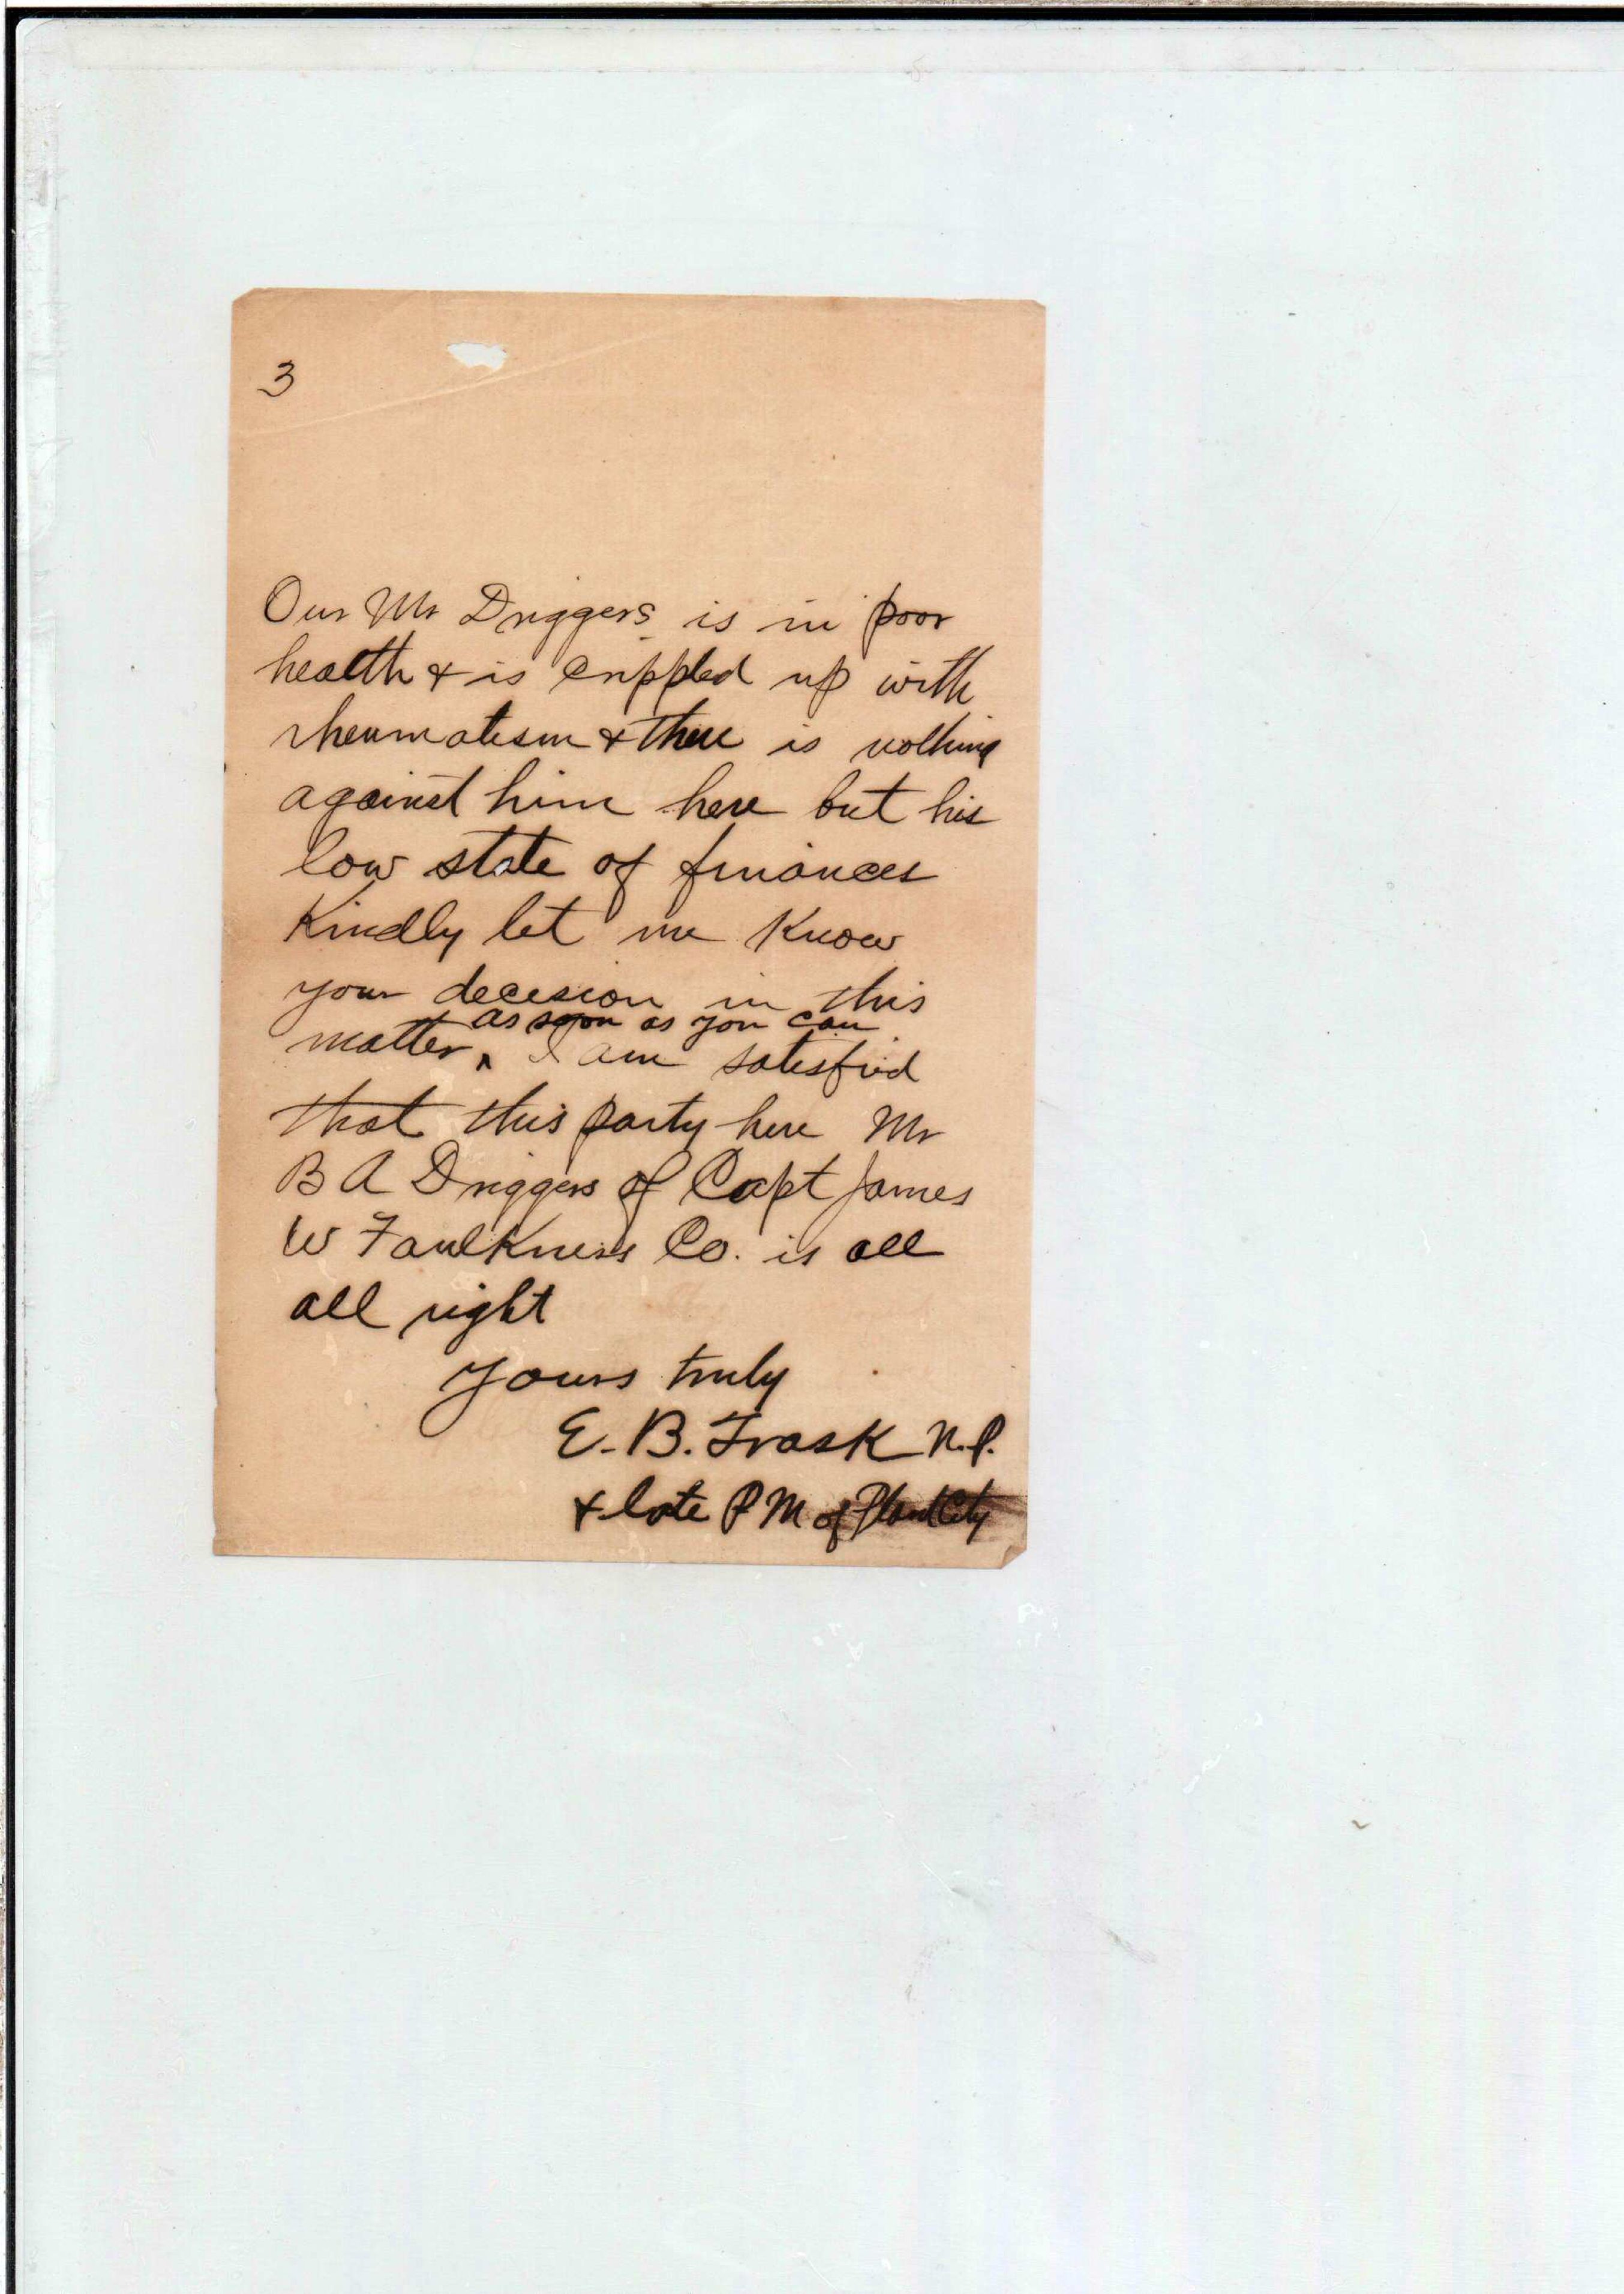 3
Our Mr Driggers is in poor
health & is crippled up with
rheumatism & there is nothing
against him here but his
low state of finances
Kindly let me Know
your decesion in this
as soon as you can
matter ^ I am satisfied
that this party here Mr
B A Driggers of Capt James
W Faulkners Co. is all
all right
Yours truly
E. B. Trask N.P.
& late P M of Plant City